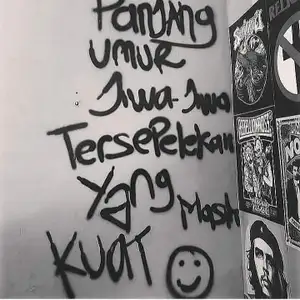 Panjang
umur
Jiwa-Jiwa
Tersepelekan
Yang
Masih
Kuat